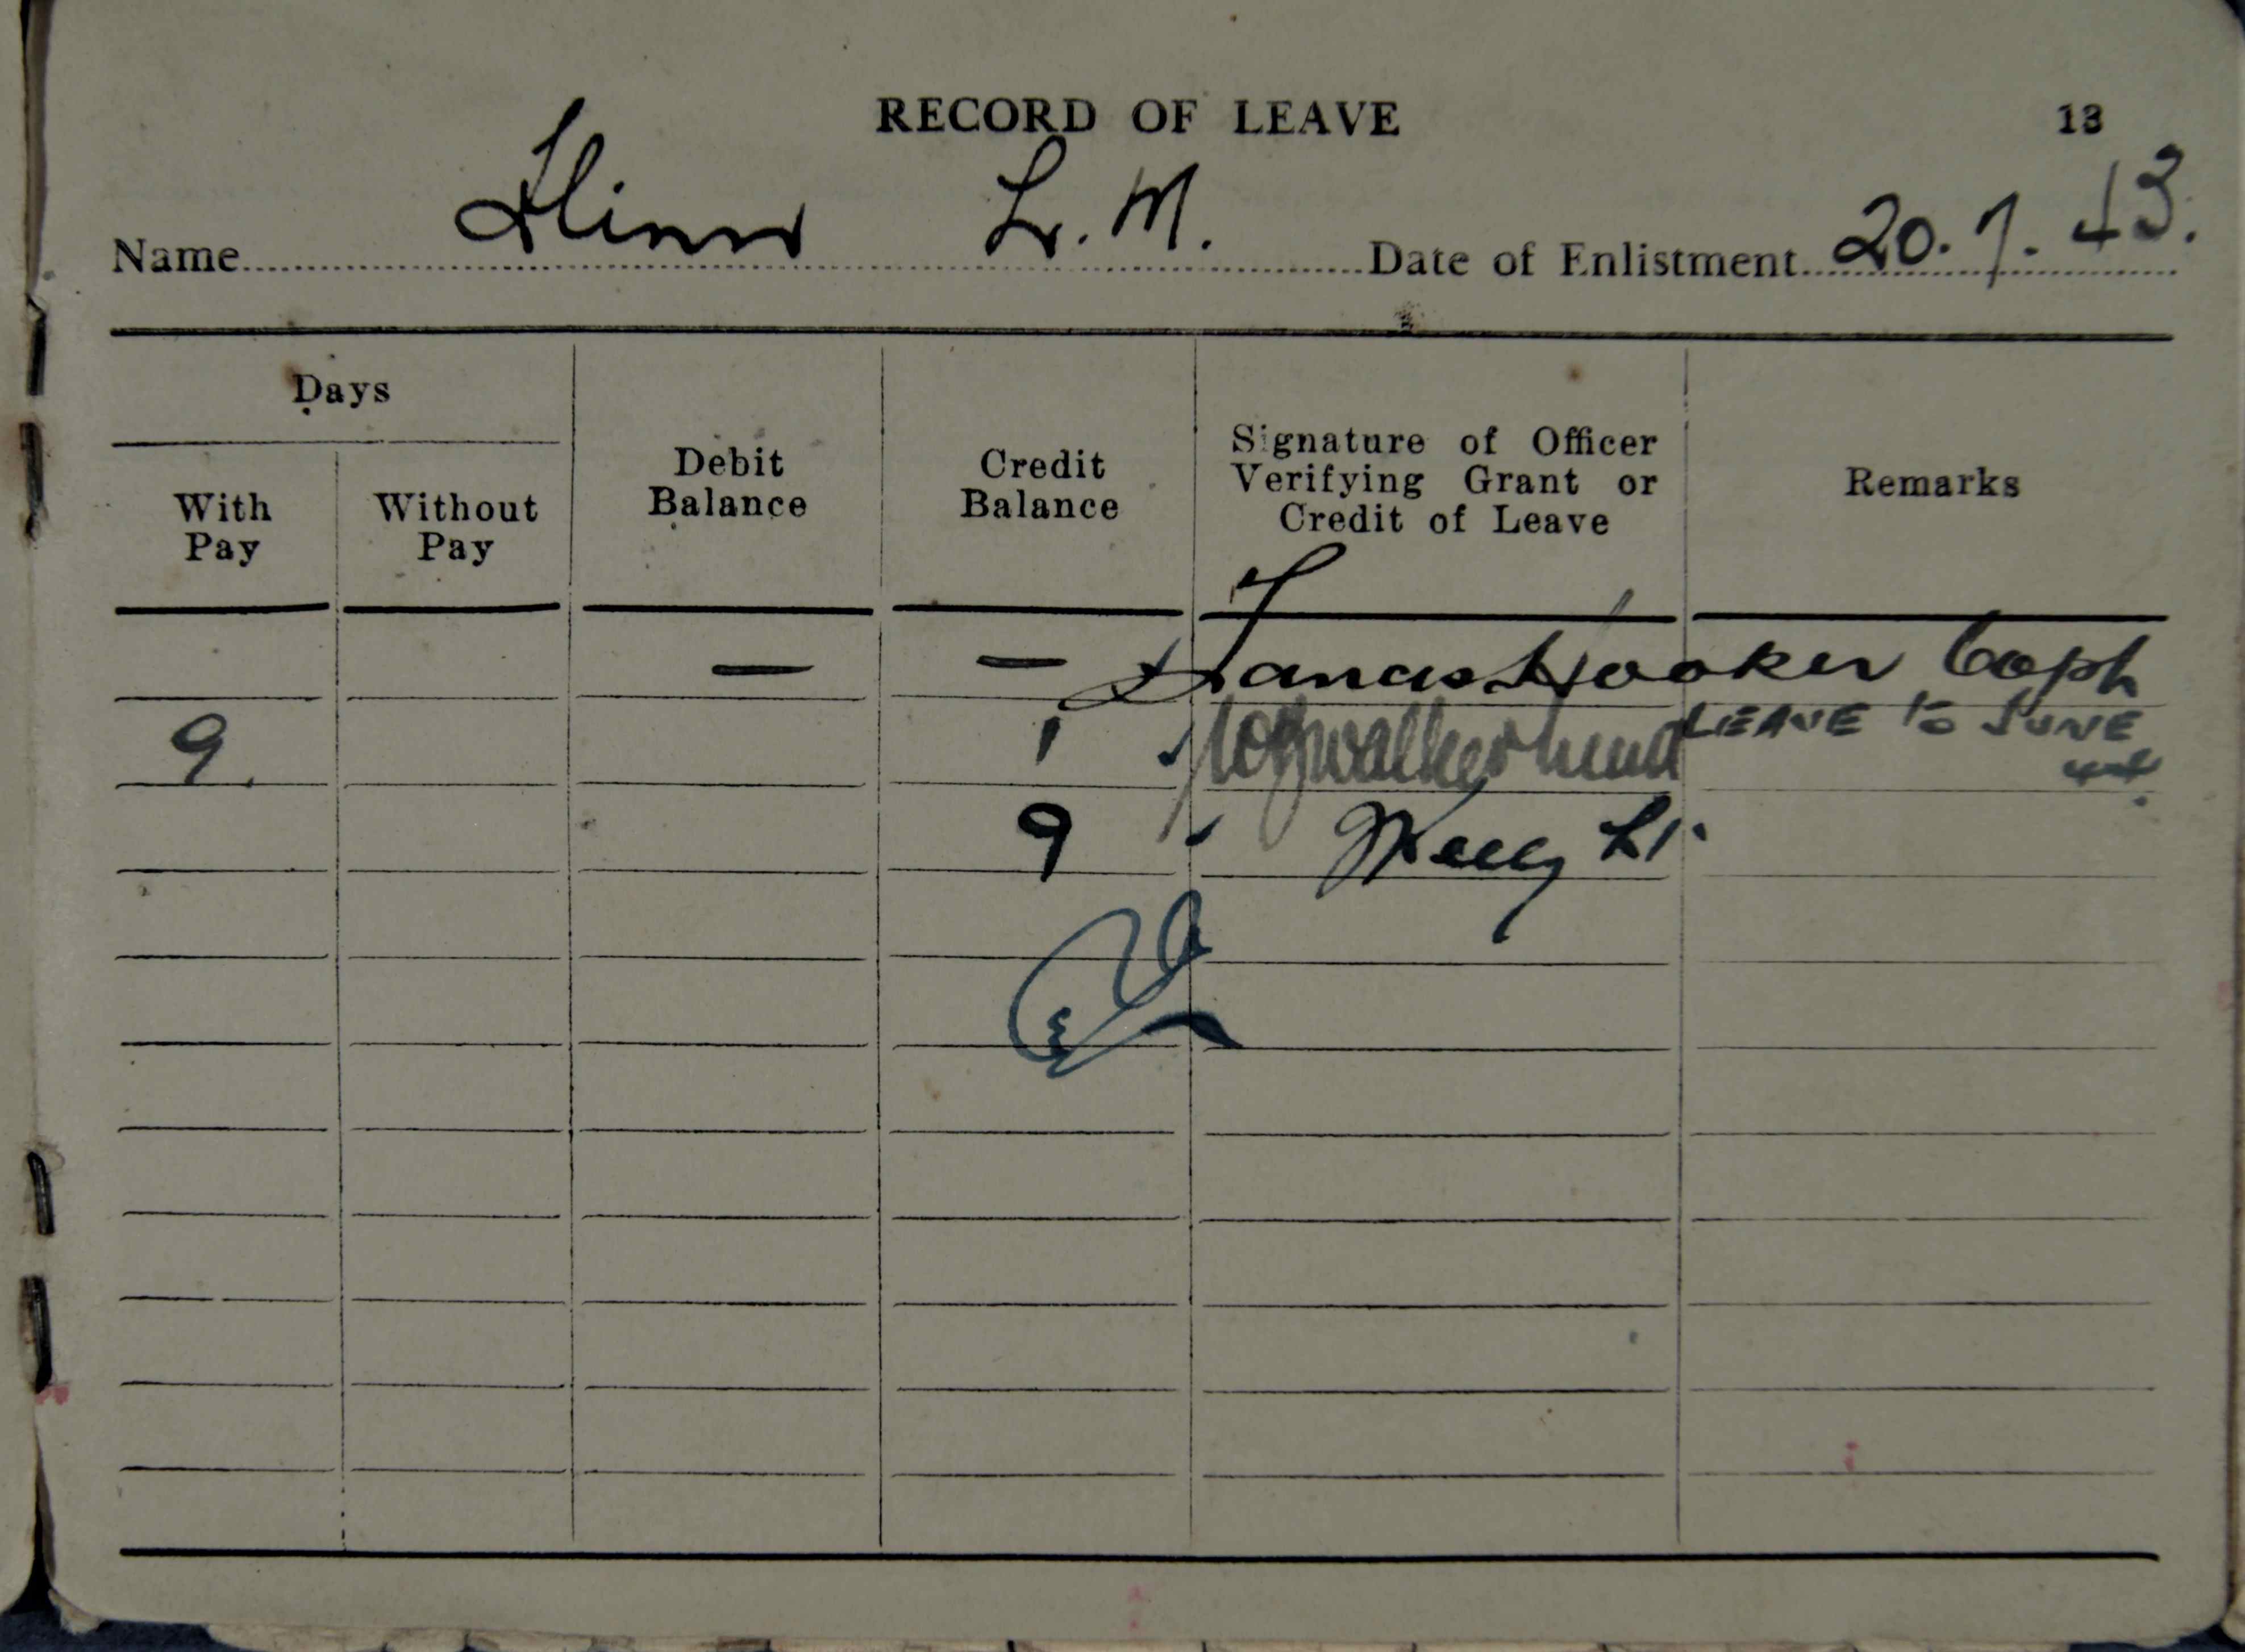 RECORD OF LEAVE 13
Name L. M. Date of Enlistment 20.7.43.
Days
With Pay
Without Pay
Debit Balance
Credit Balance
Signature of Officer
Verifying Grant or
Credit of Leave
Remarks
— — Hooker Coph
9. 1 LEAVE TO JUNE
44.
9 Kelly Lt.